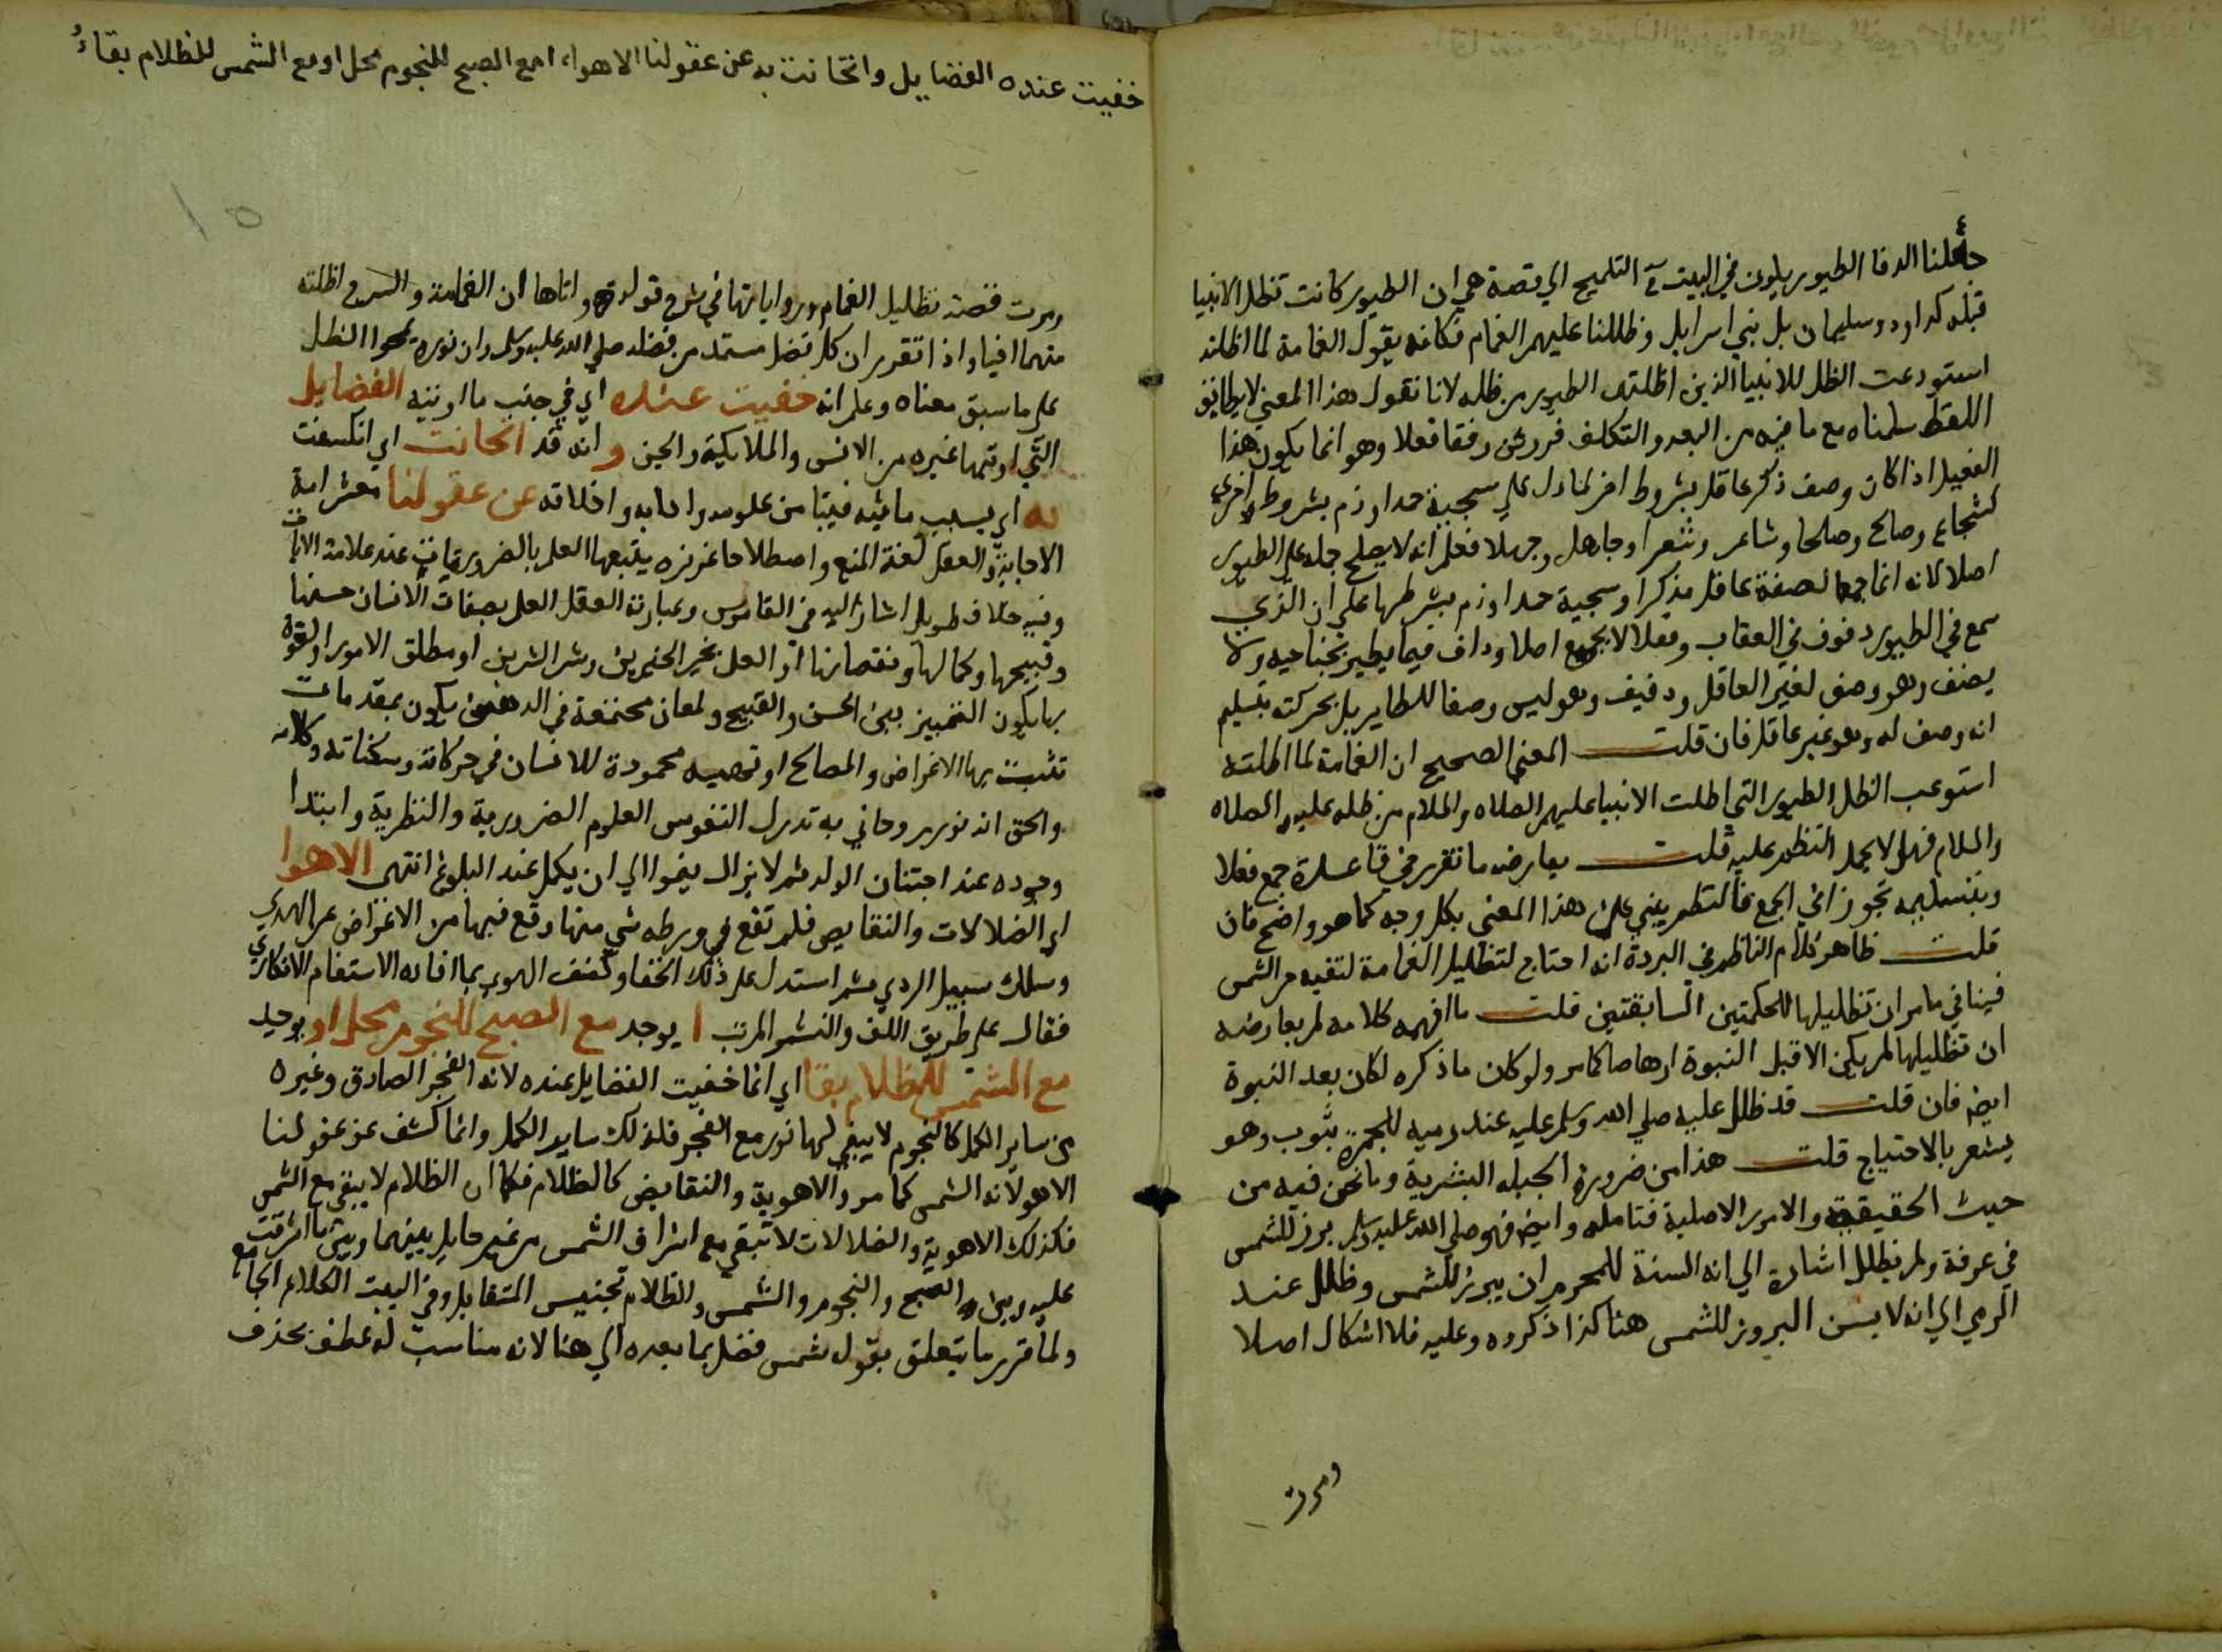 جعلنا الدفا الطيور يلون في البيت في التلميح الي قصة هي ان الطيور كانت تظل الانبيا
قبله كداود وسليمان بل بني اسرايل وظللنا عليهم الغمام فكانه يقول الغمامة لما اظلته
استودعت الظل للانبيا الذين اظلتهم الطيور من ظله لانا نقول هذا المعني لا يطابق
اللفظ سلمناه مع ما فيه من البعد والتكلف فردكن دفقا فعلا وهو انما يكون هذا
الفعيل اذا كان وصف ذكر عاقل بشروط اخر لما دل علي سجية حمد او ذم بشروط اخري
كشجاع وصالح وصلحا وشاعر وشعرا وجاهل وجهلا فعلم انه لا يصلح حمله علي الطيور
اصلا لانه انما جمعا لصفة عاقل مذكر او سجية حمد او ذم بشرطها علي ان الذي
سمع في الطيور دفوف في العقاب وفعلا لا يجمع اصلا وداف فيما يطير بجناحيه ولا
يصنف وهو وصف لغير العاقل ودفيف وهو ليس وصفا للطاير بل بحركته بتسليم
انه وصف له وهو غير عاقل فان قلت المعني الصحيح ان الغمامة لما اظلته
استوعب الظل الطيور التي اظلت الانبيا عليهم الصلاه والسلام من ظله عليه الصلاه
والسلام فهلا يحمل النظم عليه قلت يعارضه ما تقرر في قاعدة جمع فعلا
وبتسليمه تجوزا في الجمع فالنظم ينبي علي هذا المعني بكل وجه كما هو واضح فان
قلت ظاهر كلام الناظم في البردة انه احتاج لتظليل الغمامة لتقيه حر الشمس
فينافي ما مر ان تظليلها للحكمتين السابقتين قلت ما افهمه كلامه لم يعارضه
ان تظليلها لم يكن الا قبل النبوة ارهاصا كما مر ولو كان ما ذكره لكان بعد النبوة
ايض فان قلت قد ظلل عليه صلي الله وسلم عليه عند رميه للجمرة بثوب وهو
يشعر بالاحتياج قلت هذا من ضرورة الجبله البشرية وما نحن فيه من
حيث الحقيقية والامور الاصلية فتامله وايض فهو صلي الله عليه وسلم برز للشمس
في عرفة ولم يظلل اشارة الي انه السنة للمحرم ان يبرز للشمس وظلل عند
الرمي الي انه لا يسن البروز للشمس هنا كذا ذكروه وعليه فلا اشكال اصلا
ومرت
خفيت عنده الفضايل وانجانت به عن عقولنا الاهواء امع الصبح للنجوم محل او مع الشمس للظلام بقاءُ
١٥
ومرت قصة تظليل الغمام ورواياتها في شرح قوله واتاها ان الغمامة والسرح اظلته
منهما افيا واذا تقرر ان كل فضل مستمد من فضله صلي الله عليه وسلم وان نوره محوا الظل
علي ما سبق معناه وعلم انه خفيت عنده اي في جنب ما اوتيه الفضايل
التي اوتيها غيره من الانس والملايكة والجن وانه قد انجانت اي انكسفت
به اي بسبب ما بثه فينا من علومه وادابه واخلاقه عن عقولنا معشر امة
الاجابة والعقل لغة المنع واصطلاحا غريزه يتبعها العلم بالضروريات عند سلامة الالات
وفيه خلاف طويل اشار اليه في القاموس وعبارته العقل العلم بصفات الانسان حسنها
وقبيحها وكمالها ونقصانها او العلم بخير الخيرين وشر الشرين او مطلق الامور او لقوة
بها يكون التمييز بين الحسن والقبيح ولمعان مجتمعة في الذهن يكون بمقدمات
تثبت بها الاغراض والمصالح او لهيية محمودة للانسان في حركاته وسكناته وكلامه
والحق انه نور روحاني به تدرك النفوس العلوم الضرورية والنظرية وابتدا
وجوده عند اجتنان الولد ثم لا يزال ينموا الي ان يكمل عند البلوغ انتهى الاهوا
اي الضلالات والنقايص فلم تقع في ورطه شي منها وقع فيها من الاغراض عن الهدي
وسلك سبيل الردي ثم استدل علي ذلك الخفا وكشف الهوي بما افاده الاستفهام الانكاري
فقال علي طريق اللف والنشر المرتب ا يوجد مع الصبح للنجوم محل او يوجد
مع الشمس للظلام بقا اي انما خفيت الفضايل عنده لانه الفجر الصادق وغيره
من ساير الكمل كالنجوم لا يبقي لها نور مع الفجر فلذلك ساير الكمل وانما كشف عن عقولنا
الاهولانه الشمس كما مر والاهوية والنقايص كالظلام فكما ان الظلام لا يبقي مع الشمس
فكذلك الاهوية والضلالات لا تبقي مع اشراق الشمس من غير حايل بينهما وبين ما اشرقت
عليه وبين الصبح والنجوم والشمس والظلام تجنيس التقابل وفي البيت الكلام الجامع
ولما قرر ما يتعلق بقوله شمس فضل بما بعده الي هنا لانه مناسب له عطف بحذف